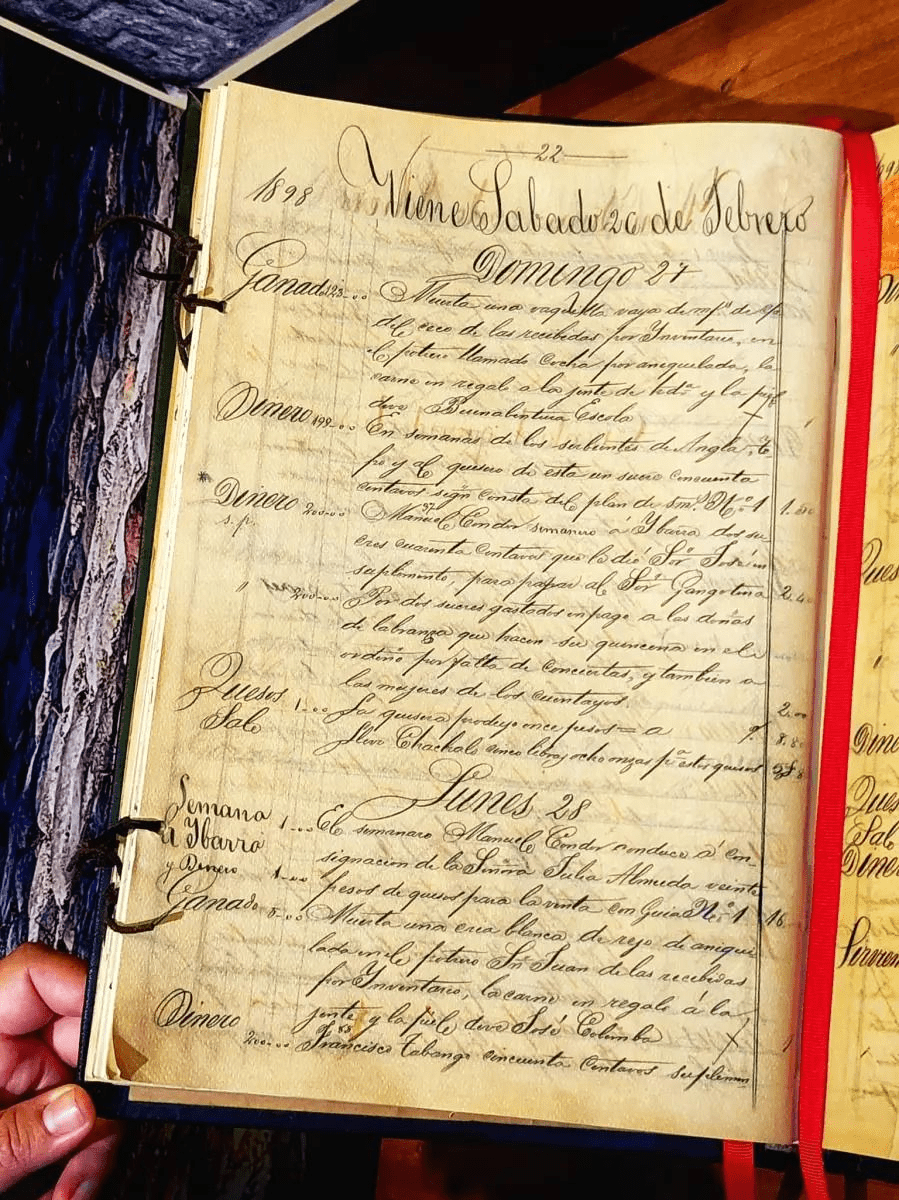 22
1898
Viene Sabado 26 de Febrero
Domingo 27
Ganado 123-00 Muerta una vaquilla vaya de
del ceco de las recibidas por Inventario, en
el potrero llamado Cocha por aniquilada, la
carne en regalo a la jente de hdª y la piel
deve Buenabentura Escola
Dinero 199-00 En semanas de los serbientes de Angla,
y el quesero de esta un sucre cincuenta
centavos sign consta del plan de Nº 1 1.50
Dinero 200-00 Manuel Condor semanero á Ybarra dos su
s. p.
cres cuarenta centavos que le dió Sor José en
suplemento, para pagar al Sor Gangotena 2.40
" 200-00 Por dos sucres gastados en pago a las
de labranza que hacen su quincena en el
ordeño por falta de conciertas, y tambien a
las mujeres de los cuentayos 2.00
Quesos 1-00 La quesera produjo once pesos = a 8.80
Sal Llevo Chachalo cinco libras ocho onzas pª estos quesos
Lunes 28
Semana á Ybarra 1-00 El semanero Manuel Condor conduce á con
y Dinero 1-00 signacion de la Señora Julia Almeda veinte
pesos de quesos para la venta con Guia Nº 1 16
Ganado 5-00 Muerta una cria blanca de rejo de aniqui
lada en el potrero Sn Juan de las recibidas
por Inventario, la carne en regalo á la
jente y la piele deve José Colimba 1
Dinero 200-00 Francisco Tabango cincuenta centavos suplemen
Dine
Ques
Sal
Diner
Sirvien